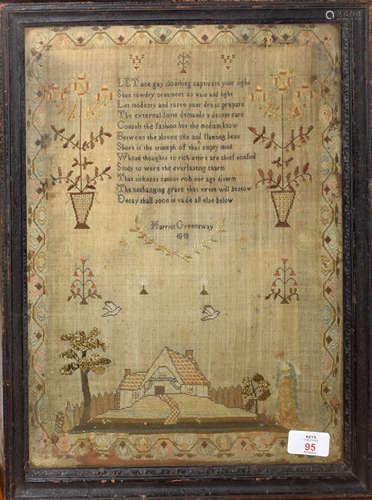 LET not gay cloathing captivate your sight
Gaze tawdry ornament so vain and light
Let modesty and taste your dress prepare
The external form demands a decent care
Consult the fashion but the medium know
Between the sloven and flaunting beau
Short is the triumph of that empty mind
Whose thoughts to rich attire are chief confind
Study to wear the everlasting charm
That sickness cannot rob nor age disarm
The unchanging grace that virtue will bestow
Decay shall soon invade all else below
Harriot Greenaway
KEYS
95